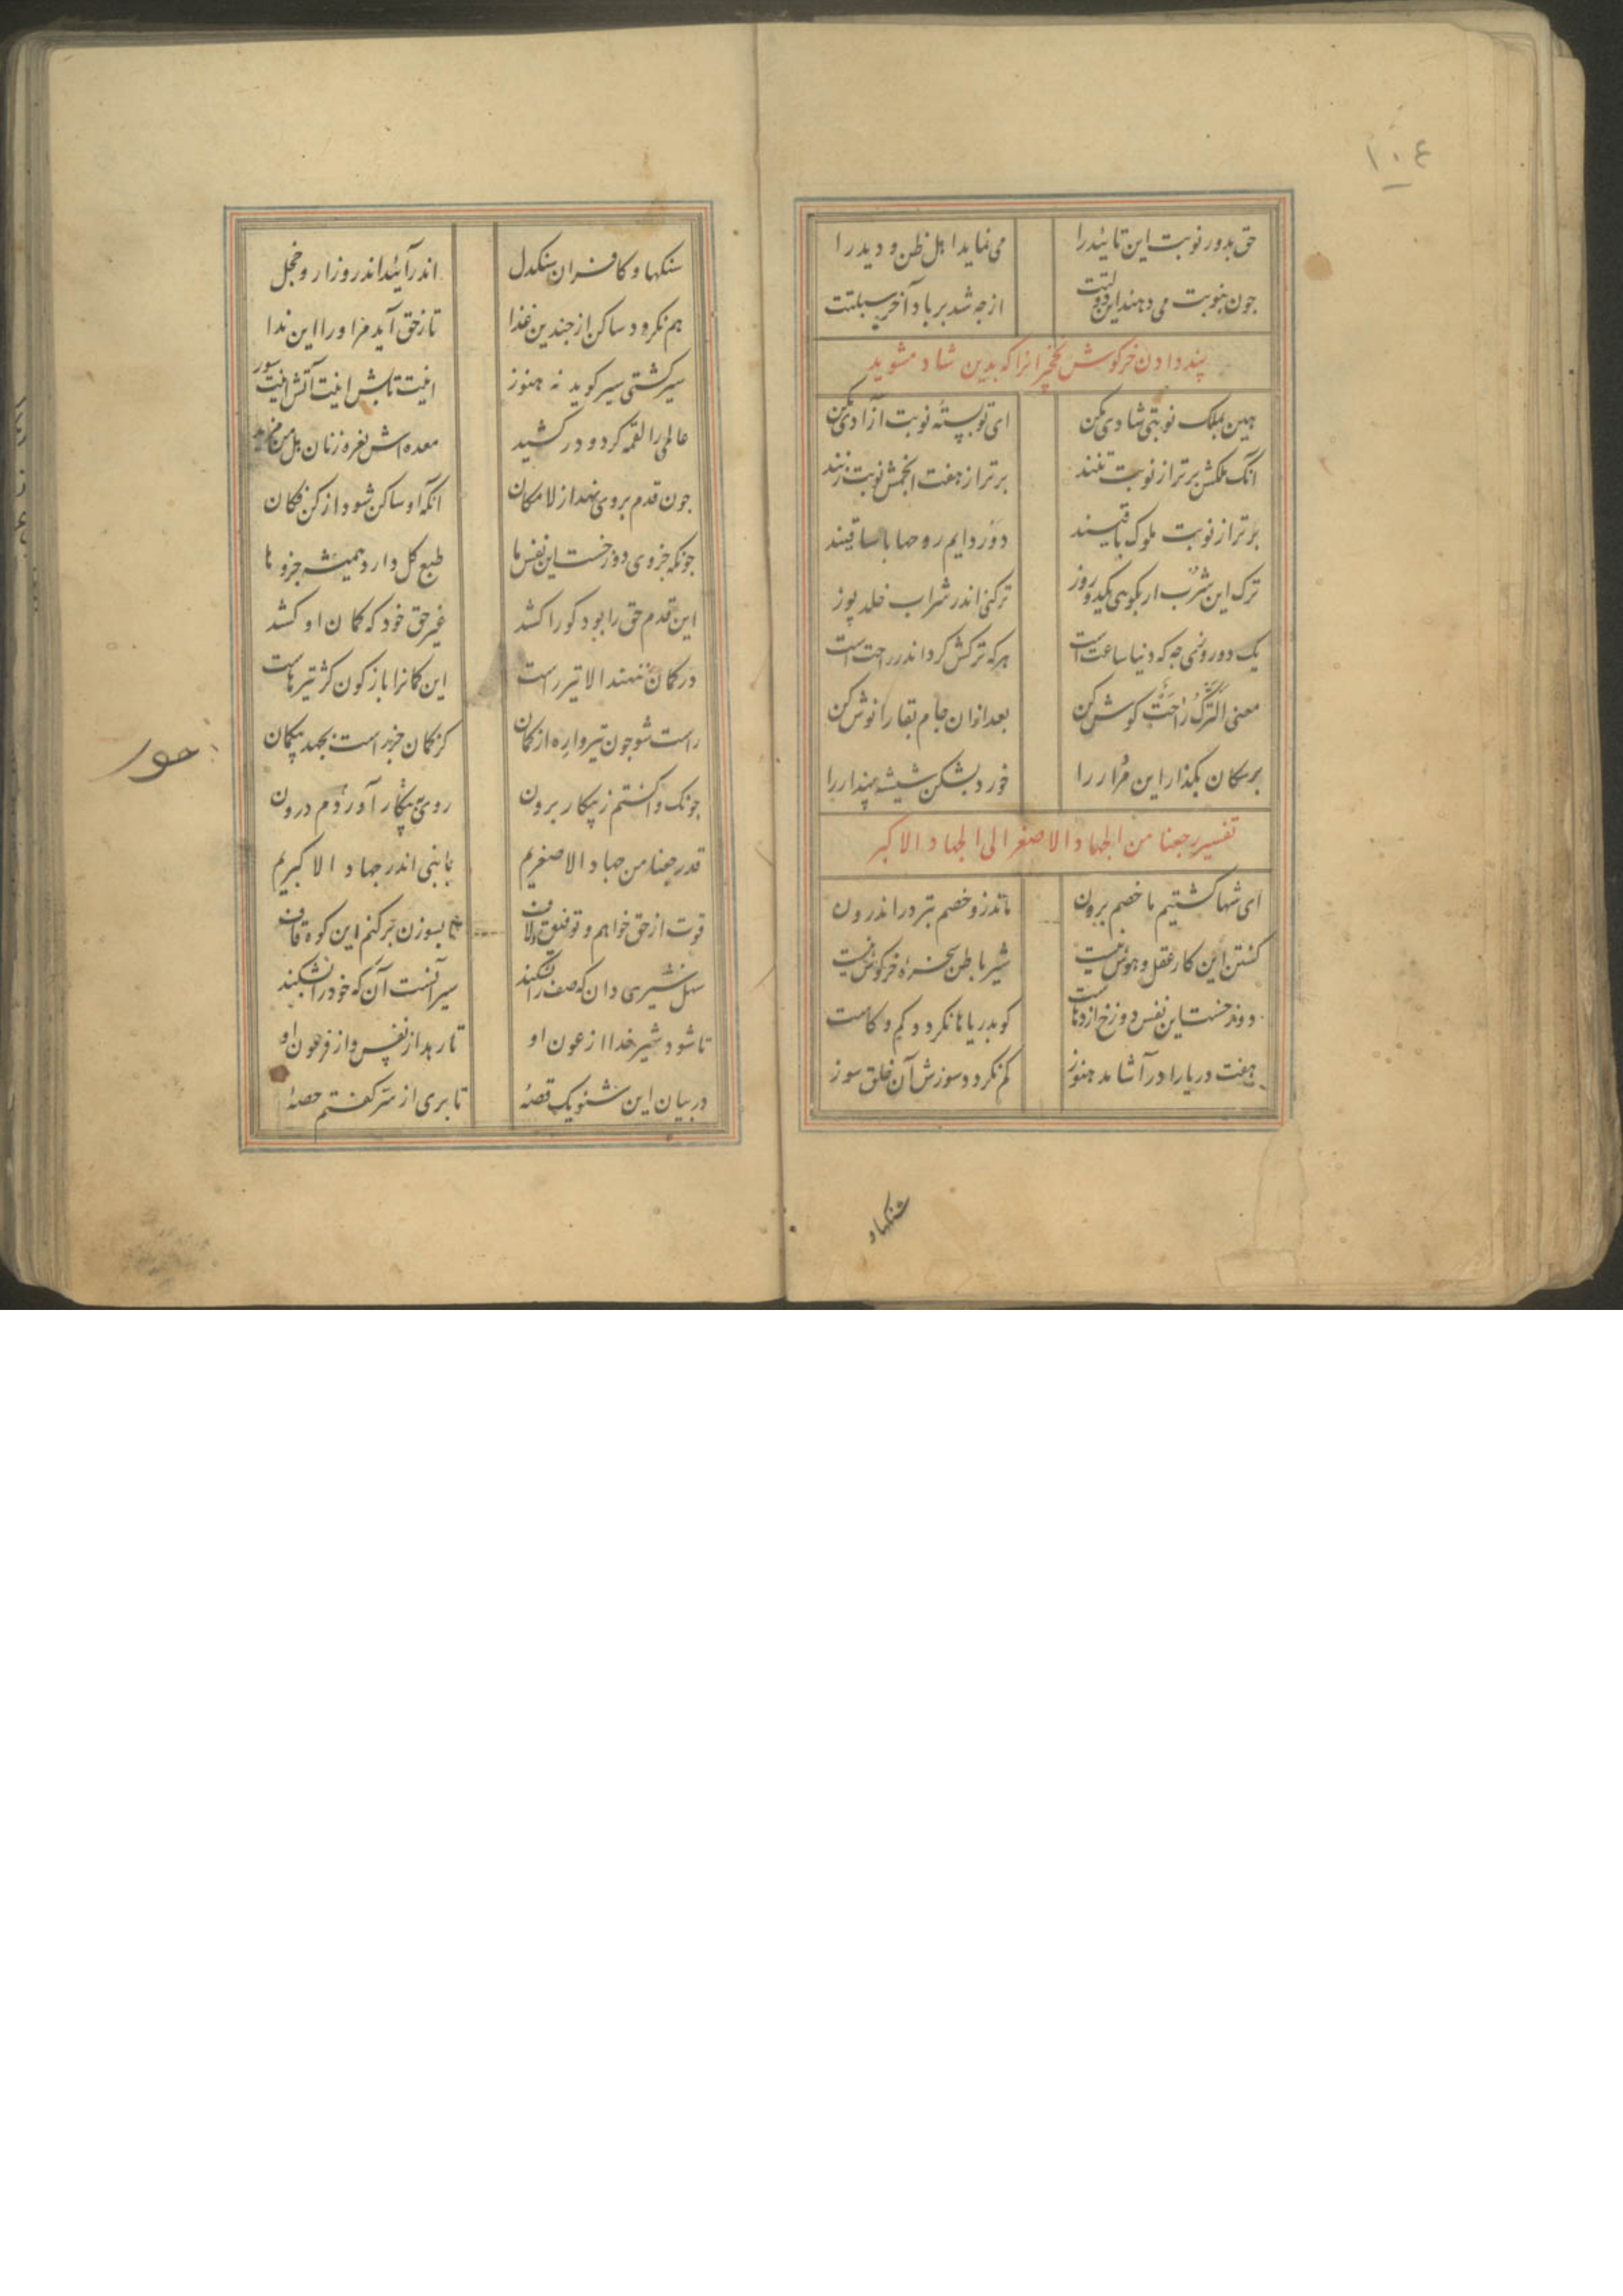 ۱۰٤
حق بدور نوبت این تائیدرا می نماید اهل ظن و دید را
جون بنوبت می دهند این دولتت از جه شد بر باد آخر سبلتت
پند دادن خرکوش نخجیرانرا که بدین شاد مشوید
هین بملک نوبتی شادی مکن ای تو بستهٔ نوبت آزادی مکن
انک ملکش برتر از نوبت تنند برتر از هفت انجمش نوبت زنند
برتر از نوبت ملوک باقیند دور دایم روحها با ساقیند
ترک این شرب ار بکویی یکدو روز ترکنی اندر شراب خلد پوز
یک دو روزی جه که دنیا ساعت است هرکه ترکش کرد اندر راحت است
معنی اَلتَّرکُ رَاحَتْ کوش کن بعد ازان جام بقا را نوش کن
بر سکان بکذار این مردار را خورد بشکن شیشهٔ پندار را
تفسیر رجعنا من الجهاد الاصغر الی الجهاد الاکبر
ای شها کشتیم ما خصم برون ماند زو خصم بتر در اندرون
کشتن این کار عقل و هوش نیست شیر باطن سخرهٔ خرکوش نیست
دوزخست این نفس و دوزخ اژدهاست کو بدریاها نکردد کم و کاست
هفت دریا را در آشامد هنوز کم نکردد سوزش آن خلق سوز
سنکهاو
سنکها و کافران سنکدل اندر آیند اندرو زار و خجل
هم نکردد ساکن از جندین غذا تا ز حق آید مر اورا این ندا
سیر کشتی سیر کوید نه هنوز اینت تابش اینت آتش اینت سوز
عالمی را لقمه کرد و در کشید معده اش نعره زنان هل من مزید
جون قدم بر وی نهد از لامکان انکه او ساکن شود از کن فکان
جونکه جزوی دوزخست این نفس ما طبع کل دارد همیشه جزوها
این قدم حق را بود کورا کشد غیر حق خود که کمان او کشد
در کمان ننهند الا تیر راست این کمانرا باز کون کژ تیرهاست
راست شو جون تیر و واره از کمان کز کمان هر راست بجهد بیکمان
جونک واکشتم ز پیکار برون روی پیکار آوردم درون
قد رجعنا من جهاد الاصغریم با نبی اندر جهاد الاکبریم
قوت از حق خواهم و توفیق و لاف تا بسوزن برکنم این کوه قاف
سهل شیری دان که صف را بشکند سیر آنست آن که خود را بشکند
تا شود شیر خدا از عون او تا رهد از نفس و از فرعون او
در بیان این شنو یک قصهٔ تا بری از سر کفتم حصهٔ